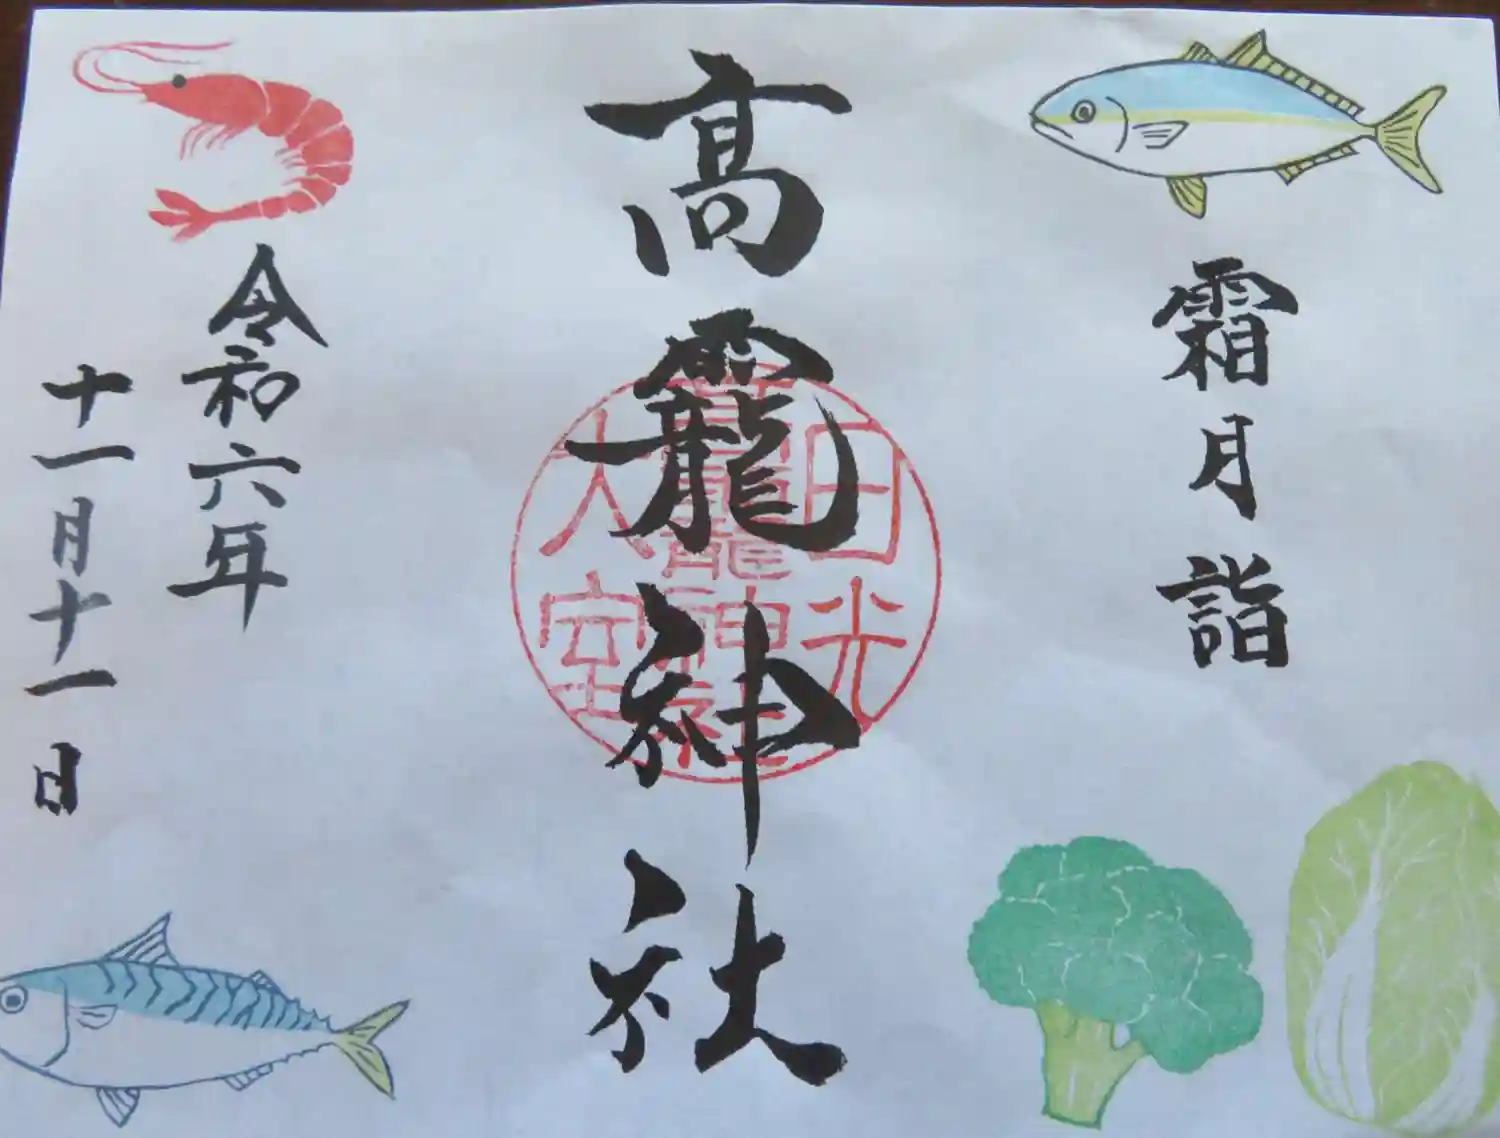 霜月詣
高龗神社
日光
高龗神社
大室
令和六年
十一月十一日